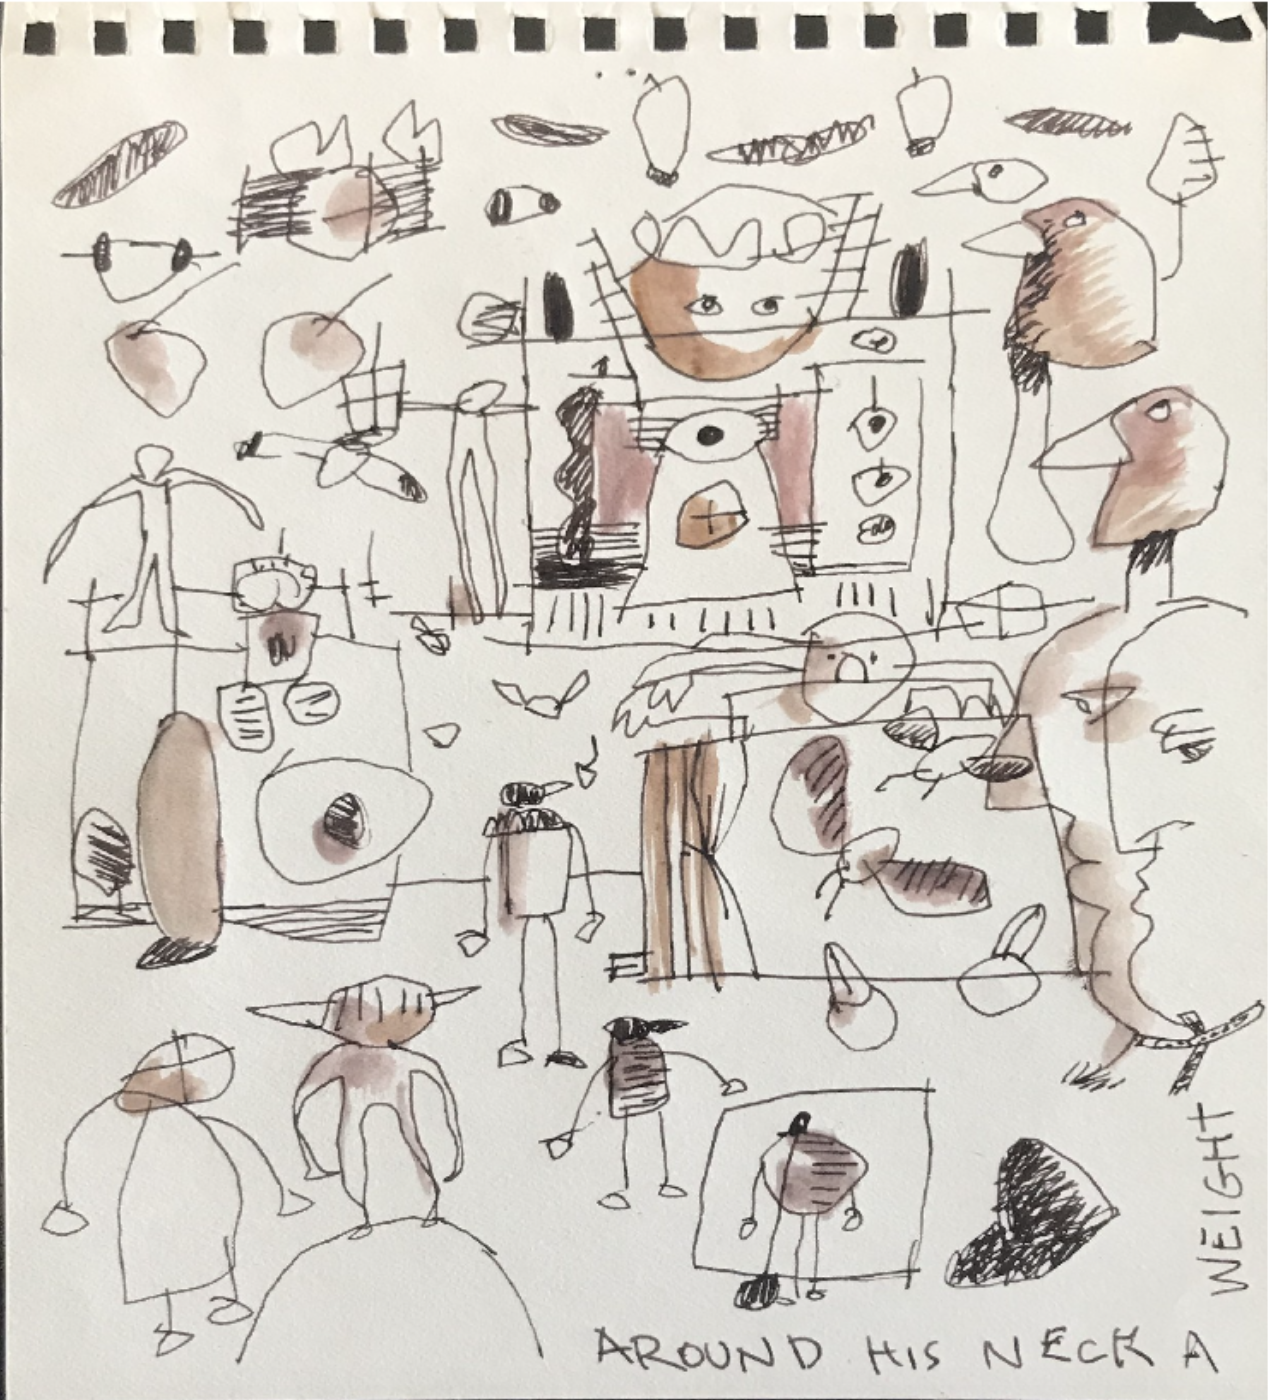 AROUND HIS NECK A
WEIGHT